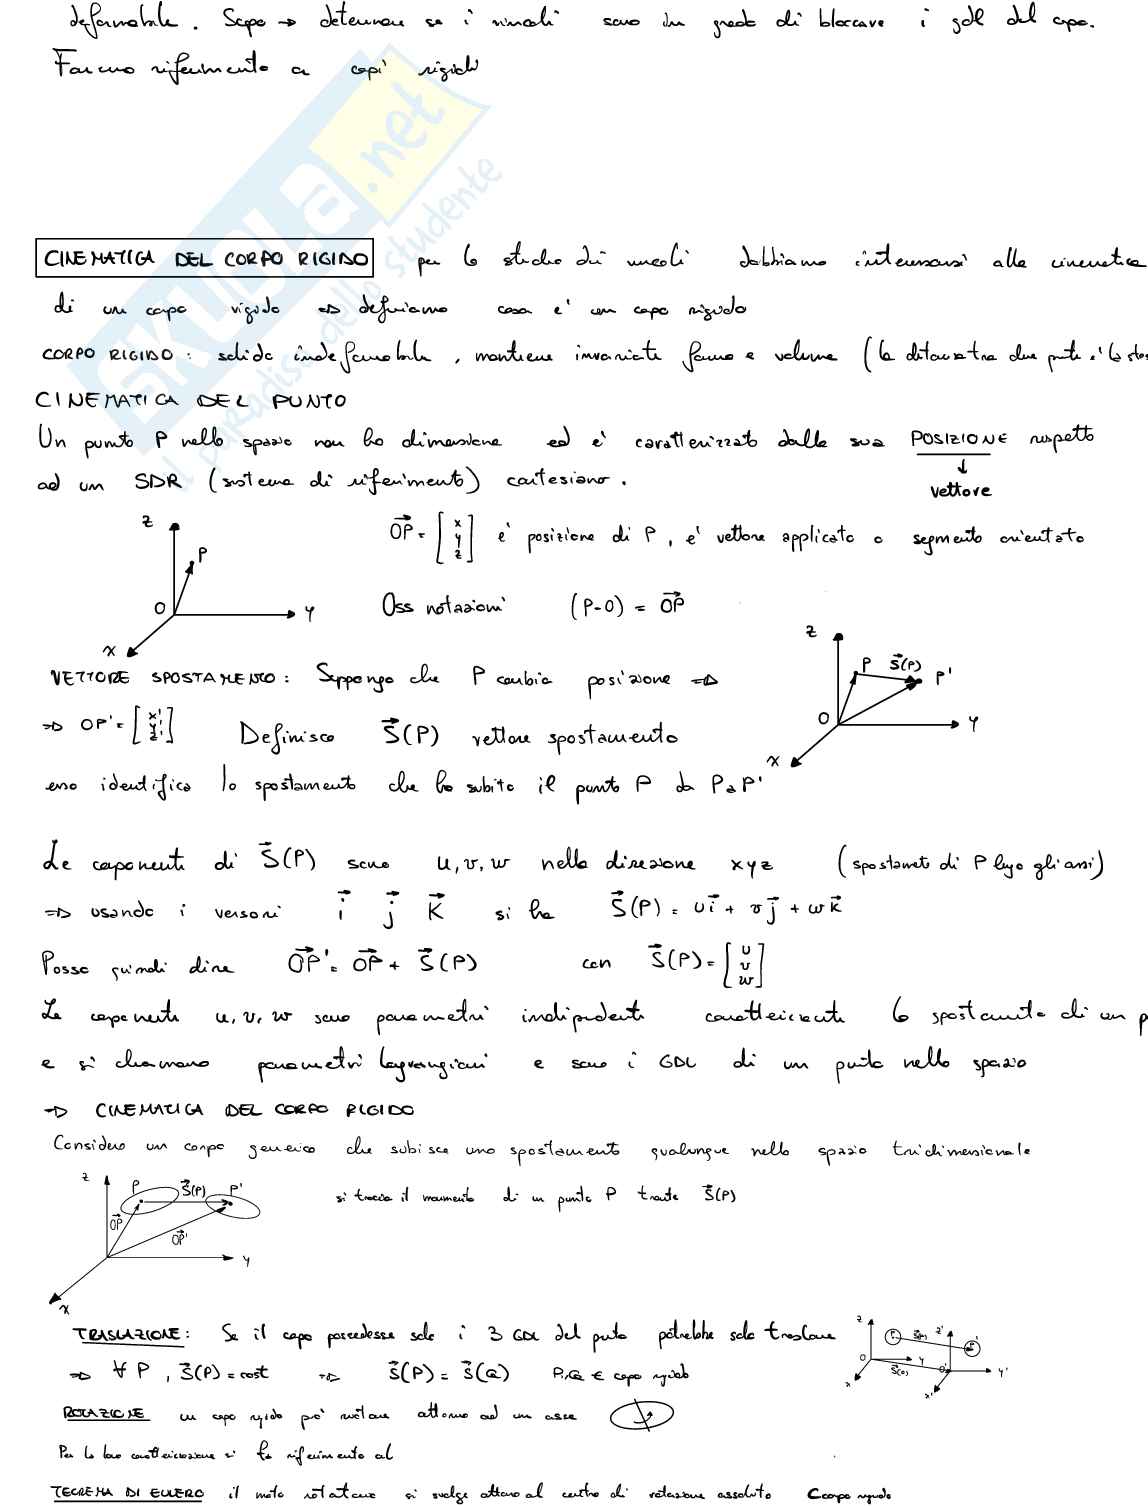 deformabile. Scopo → determinare se i vincoli sono in grado di bloccare i gdl del corpo.
Faremo riferimento a corpi rigidi
SKUOLA.net
il paradiso dello studente
CINEMATICA DEL CORPO RIGIDO per lo studio dei vincoli dobbiamo interessarsi alla cinematica
di un corpo rigido => definiamo cosa e' un corpo rigido
CORPO RIGIDO: solido indeformabile, mantiene invariate forma e volume (la distanza tra due punti e' la stes
CINEMATICA DEL PUNTO
Un punto P nello spazio non ha dimensione ed e' caratterizzato dalla sua POSIZIONE rispetto
ad un SDR (sistema di riferimento) cartesiano. ↓
vettore
z P O y x
OP = [x y z] e' posizione di P, e' vettore applicato o segmento orientato
Oss notazioni (P-O) = OP
z P S(P) P' O y x
VETTORE SPOSTAMENTO: Suppongo che P cambia posizione =>
=> OP' = [x' y' z'] Definisco S(P) vettore spostamento
esso identifica lo spostamento che ha subito il punto P da P a P'
Le componenti di S(P) sono u, v, w nella direzione xyz (spostamenti di P lungo gli assi)
=> usando i versori i j k si ha S(P) = ui + vj + wk
Posso quindi dire OP' = OP + S(P) con S(P) = [u v w]
Le componenti u, v, w sono parametri indipendenti caratterizzanti lo spostamento di un p
e si chiamano parametri lagrangiani e sono i GDL di un punto nello spazio
=> CINEMATICA DEL CORPO RIGIDO
Considero un corpo generico che subisce uno spostamento qualunque nello spazio tridimensionale
z P S(P) P' OP OP' y x
si traccia il movimento di un punto P tramite S(P)
TRASLAZIONE: Se il corpo possedesse solo i 3 GDL del punto potrebbe solo traslare
=> ∀ P, S(P) = cost => S(P) = S(Q) P,Q ∈ corpo rigido
z P S(P) z' P' O y S(O) O' y' x x'
ROTAZIONE un corpo rigido puo' ruotare attorno ad un asse
Per la loro caratterizzazione si fa riferimento al
TEOREMA DI EULERO il moto rotatorio si svolge attorno al centro di rotazione assoluto C corpo rigido